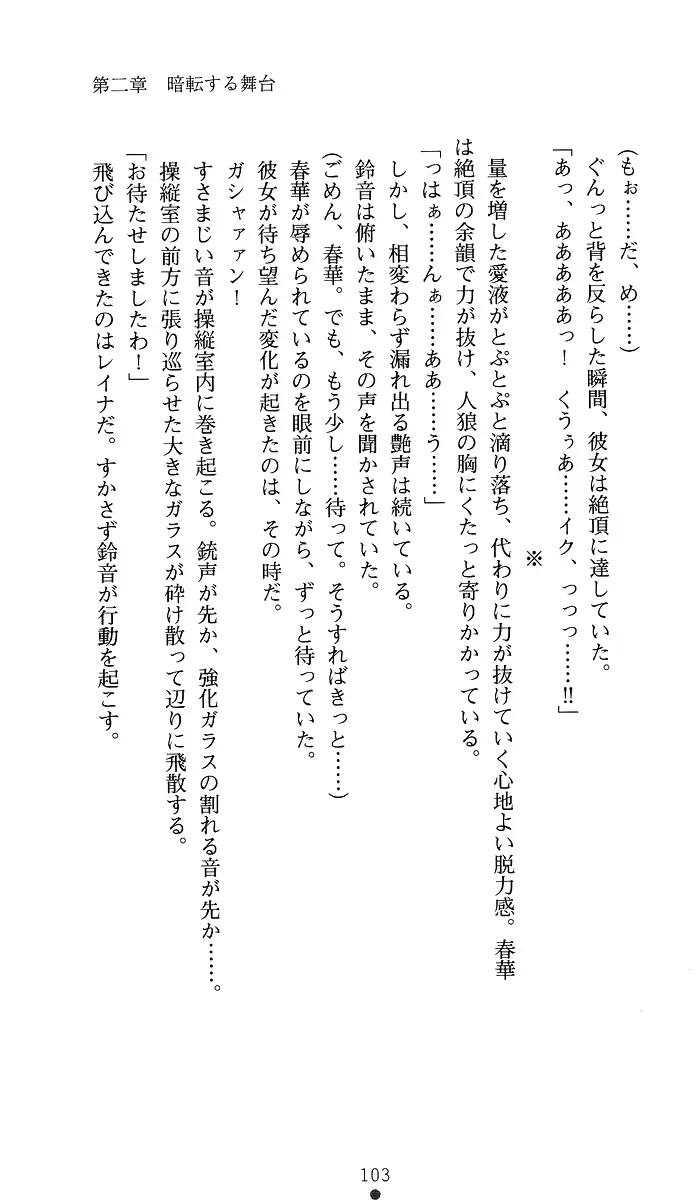 第二章　暗転する舞台
（もぉ……だ、め……）
ぐんっと背を反らした瞬間、彼女は絶頂に達していた。
「あっ、あああああっ！　くうぅあ……イク、っっっ……‼」
※
量を増した愛液がとぷとぷと滴り落ち、代わりに力が抜けていく心地よい脱力感。春華
は絶頂の余韻で力が抜け、人狼の胸にくたっと寄りかかっている。
「っはぁ……んぁ……ああ……う……」
しかし、相変わらず漏れ出る艶声は続いている。
鈴音は俯いたまま、その声を聞かされていた。
（ごめん、春華。でも、もう少し……待って。そうすればきっと……）
春華が辱められているのを眼前にしながら、ずっと待っていた。
彼女が待ち望んだ変化が起きたのは、その時だ。
ガシャァァン！
すさまじい音が操縦室内に巻き起こる。銃声が先か、強化ガラスの割れる音が先か……。
操縦室の前方に張り巡らせた大きなガラスが砕け散って辺りに飛散する。
「お待たせしましたわ！」
飛び込んできたのはレイナだ。すかさず鈴音が行動を起こす。
103